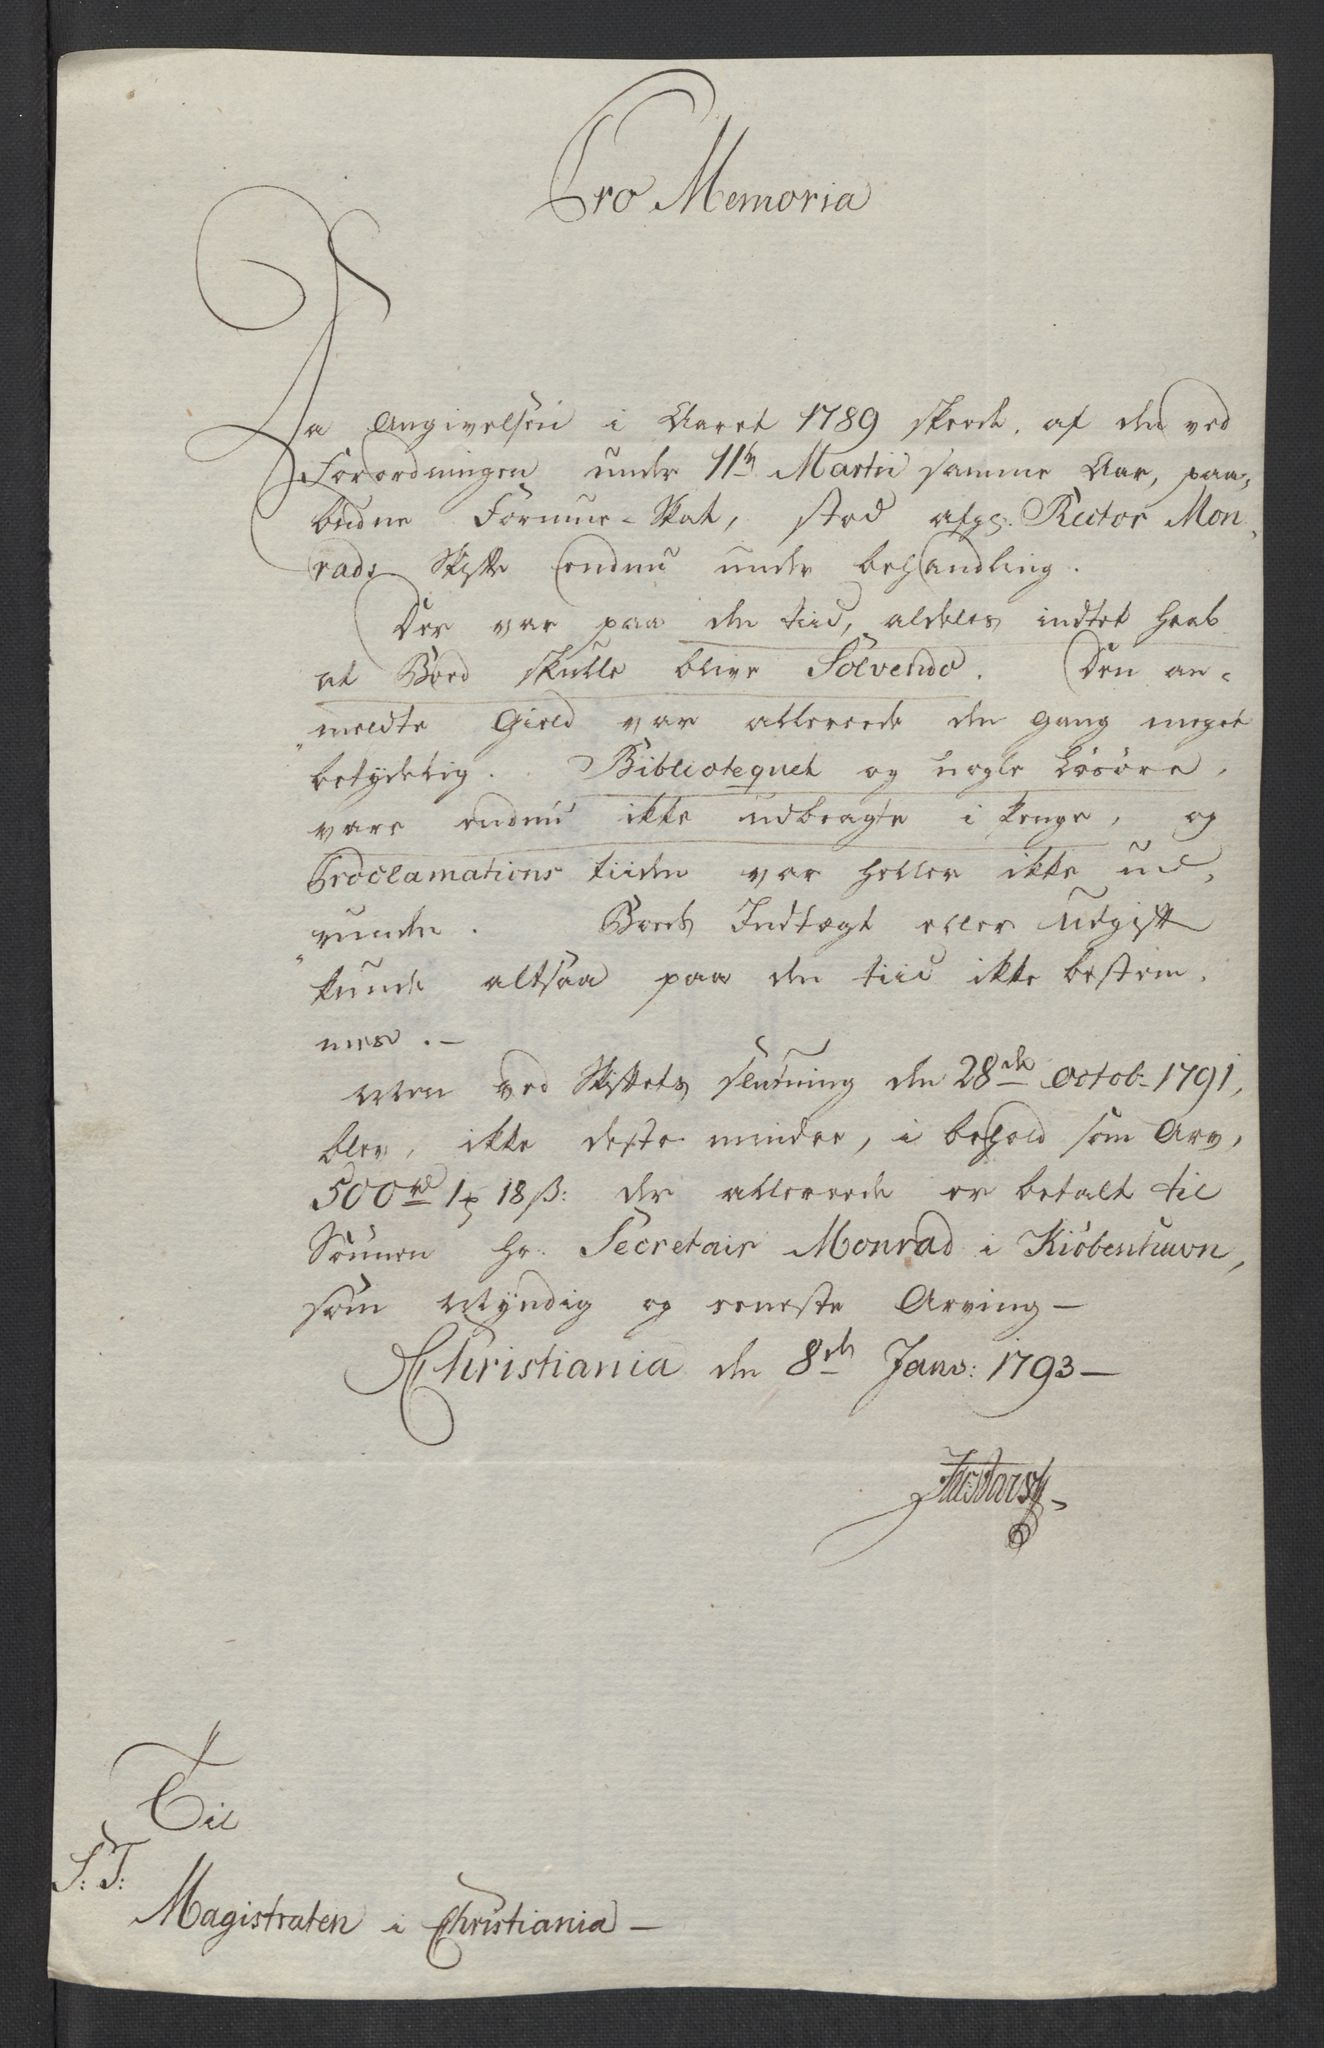 Pro Memoria
Da Angivelsen i Aaret 1789 skeede, af den ved
Forordningen under 11te Martii samme Aar, paa-
budne Formue-Skat, stod afg: Rector Mon-
rads Skifte endnu under behandling.
Der var paa den tiid, aldeles indtet Haab
at Boed skulle blive Solvendo. Den an-
meldte Gield var allereede den gang meget
betydelig. Bibliotequet og nogle Løsøre,
vare endnu ikke udbragte i penge, og
Proclamations tiiden var heller ikke ud-
runden. Boeds Indtægt eller Udgift
kunde altsaa paa den tiid ikke bestem-
mes. –
Men ved Skiftets slutning den 28de Octob. 1791,
blev, ikke desto mindre, i behold som Arv,
500 rd 1 ₰ 18 ß: der allereede er betalt til
Sönnen Hr. Secretair Monrad i Kiöbenhavn,
som Myndig og eeneste Arving –
Christiania den 8de Janv: 1793 –
Til
S: T:
Magistraten i Christiania –